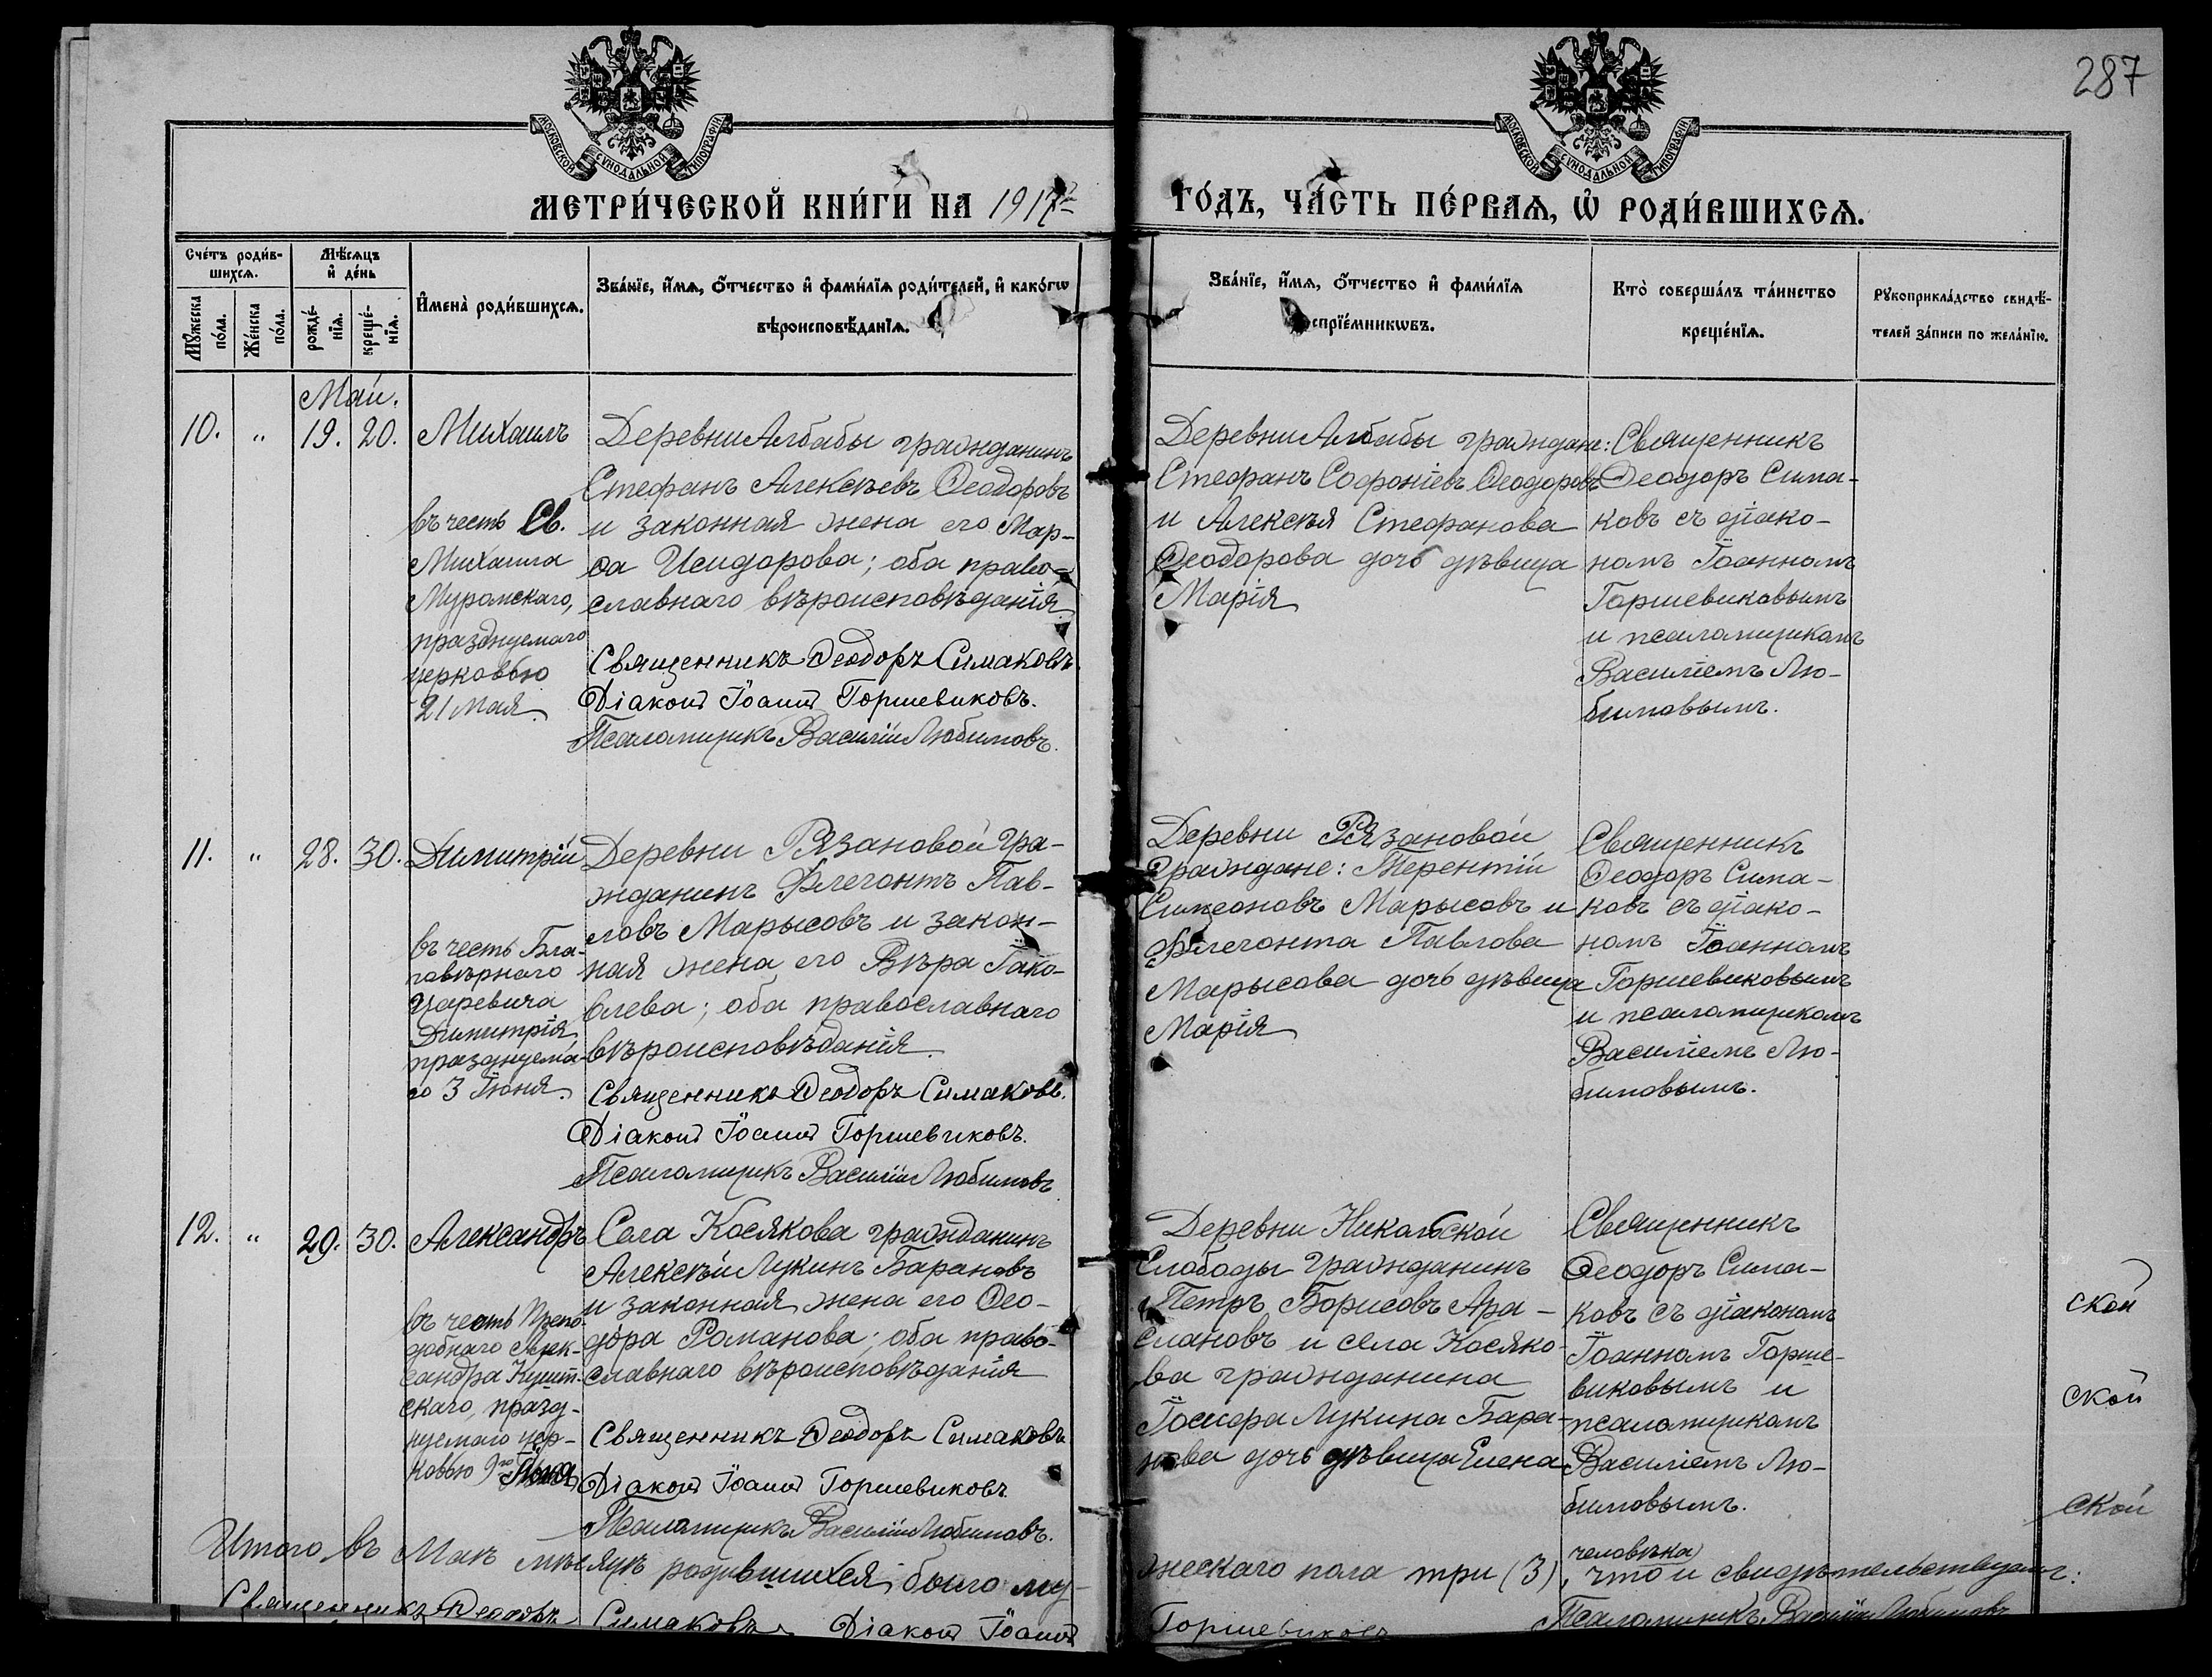 287
МОСКОВСКОЙ СѴНОДАЛЬНОЙ ТИПОГРАФІИ
МОСКОВСКОЙ СѴНОДАЛЬНОЙ ТИПОГРАФІИ
МЕТРИ́ЧЕСКОЙ КНИ́ГИ НА 1917 ГО́ДЪ, ЧА́СТЬ ПЕ́РВАѦ, Ѽ РОДИ́ВШИХСѦ.
Сче́тъ роди́в-
шихсѧ.
Мѣ́сѧцъ
и҆ де́нь
Мꙋ́жеска
по́ла.
Же́нска
по́ла.
рожде́-
нїѧ.
креще́-
нїѧ.
И҆мена̀ роди́вшихсѧ.
Зва́нїе, и҆́мѧ, ѻ҆́тчество и҆ фами́лїѧ роди́телей, и҆ како́гѡ
вѣроисповѣ́данїѧ.
Зва́нїе, и҆́мѧ, ѻ҆́тчество и҆ фами́лїѧ
спрїе́мникѡвъ.
Кто̀ соверша́лъ та́инство
креще́нїѧ.
Рꙋкоприкла́дство свидѣ́-
телей за́писи по жела́нїю.
Май.
10. " 19. 20. Михаилъ
въ честь Св.
Михаила
Муромскаго,
празднуемаго
церковью
21 мая.
Деревни Албабы гражданинъ
Стефанъ Алексѣевъ Ѳеодоровъ
и законная жена его Мар-
ѳа Исидорова; оба право-
славнаго вѣроисповѣданія
Священникъ Ѳеодоръ Симаковъ.
Діаконъ Іоаннъ Горшевиковъ.
Псаломщикъ Василій Любимовъ.
Деревни Албабы граждане:
Стефанъ Софроніевъ Ѳеодоровъ
и Алексѣя Стефанова
Ѳеодорова дочь дѣвица
Марія
Священникъ
Ѳеодоръ Сима-
ковъ съ діако-
номъ Іоанномъ
Горшевиковымъ
и псаломщикомъ
Василіемъ Лю-
бимовымъ.
11. " 28. 30. Димитрій
въ честь Бла-
говѣрнаго
Царевича
Димитрія,
празднуема-
го 3 Іюня.
Деревни Рязановой гра-
жданинъ Флегонтъ Пав-
ловъ Марысовъ и закон-
ная жена его Вѣра Іако-
влева; оба православнаго
вѣроисповѣданія.
Священникъ Ѳеодоръ Симаковъ.
Діаконъ Іоаннъ Горшевиковъ.
Псаломщикъ Василій Любимовъ
Деревни Рязановой
граждане: Терентій
Симеоновъ Марысовъ и
Флегонта Павлова
Марысова дочь дѣвица
Марія
Священникъ
Ѳеодоръ Сима-
ковъ съ діако-
номъ Іоанномъ
Горшевиковымъ
и псаломщикомъ
Василіемъ Лю-
бимовымъ.
12. " 29. 30. Александръ
въ честь Препо-
добнаго Алек-
сандра Кушт-
скаго, празд-
нуемаго цер-
ковью 9го Іюня
Села Косякова гражданинъ
Алексѣй Лукинъ Барановъ
и законная жена его Ѳео-
дора Романова; оба право-
славнаго вѣроисповѣданія
Священникъ Ѳеодоръ Симаковъ
Діаконъ Іоаннъ Горшевиковъ
Псаломщикъ Василій Любимовъ.
Деревни Никольской
Слободы гражданинъ
Петръ Борисовъ Ара-
слановъ и села Косяко-
ва гражданина
Іосифа Лукина Бара-
нова дочь дѣвица Елена
Священникъ
Ѳеодоръ Сима-
ковъ съ діакономъ
Іоанномъ Горше-
виковымъ и
псаломщикомъ
Василіемъ Лю-
бимовымъ.
ской
ской
ской
Итого въ Маѣ мѣсяцѣ родившихся было му-
жескаго пола три (3) человѣка, что и свидѣтельствуемъ:
Священникъ Ѳеодоръ Симаковъ Діаконъ Іоаннъ Горшевиковъ Псаломщикъ Василій Любимовъ